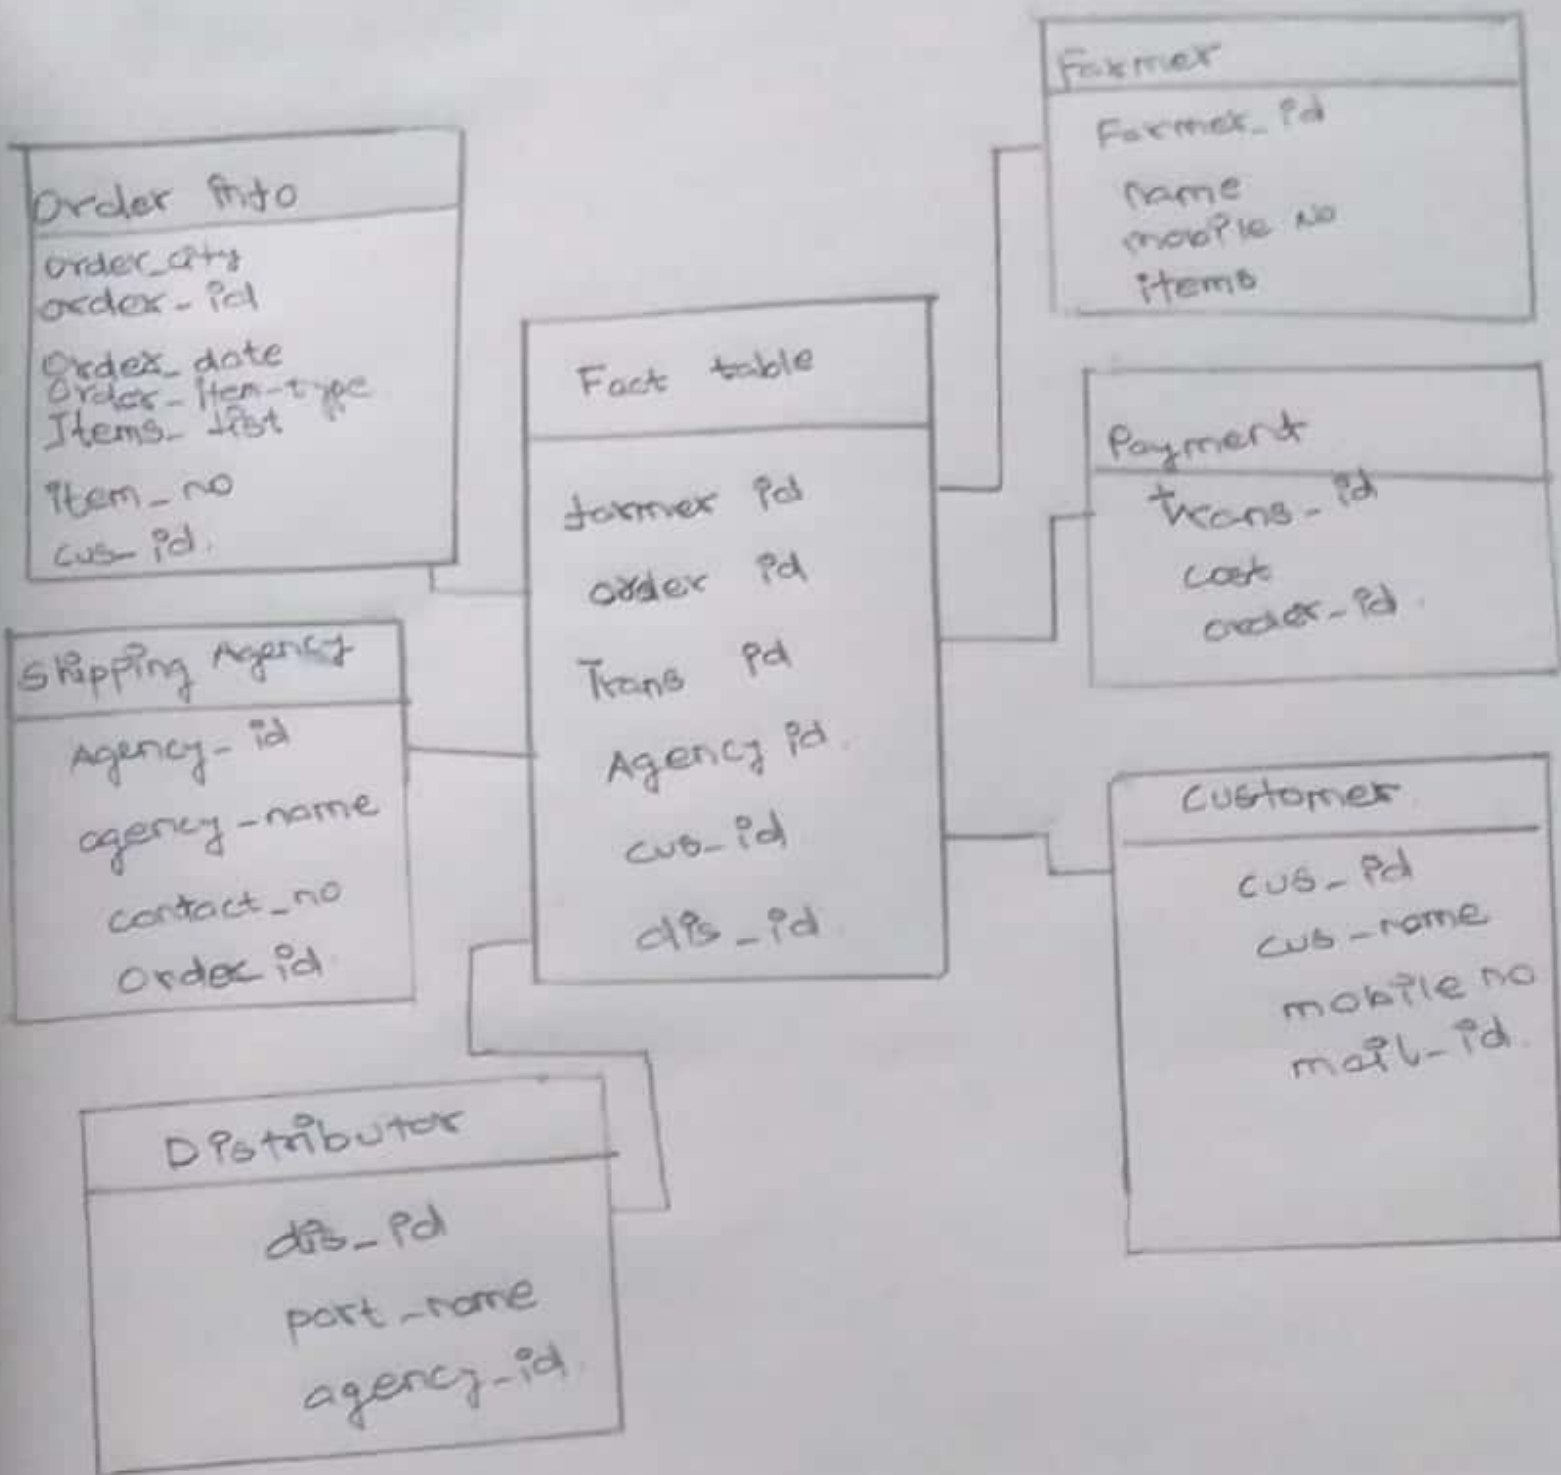 Order info
order_qty
order_id
Order_date
Order_item_type
Items_list
item_no
cus_id.
Shipping Agency
Agency_id
agency_name
contact_no
Order id
Distributor
dis_id
port_name
agency_id
Fact table
farmer id
order id
Trans id
Agency id.
cus_id
dis_id
Farmer
Farmer_id
name
mobile No
items
Payment
trans_id
cost
order_id.
customer
cus_id
cus_name
mobile no
mail_id.